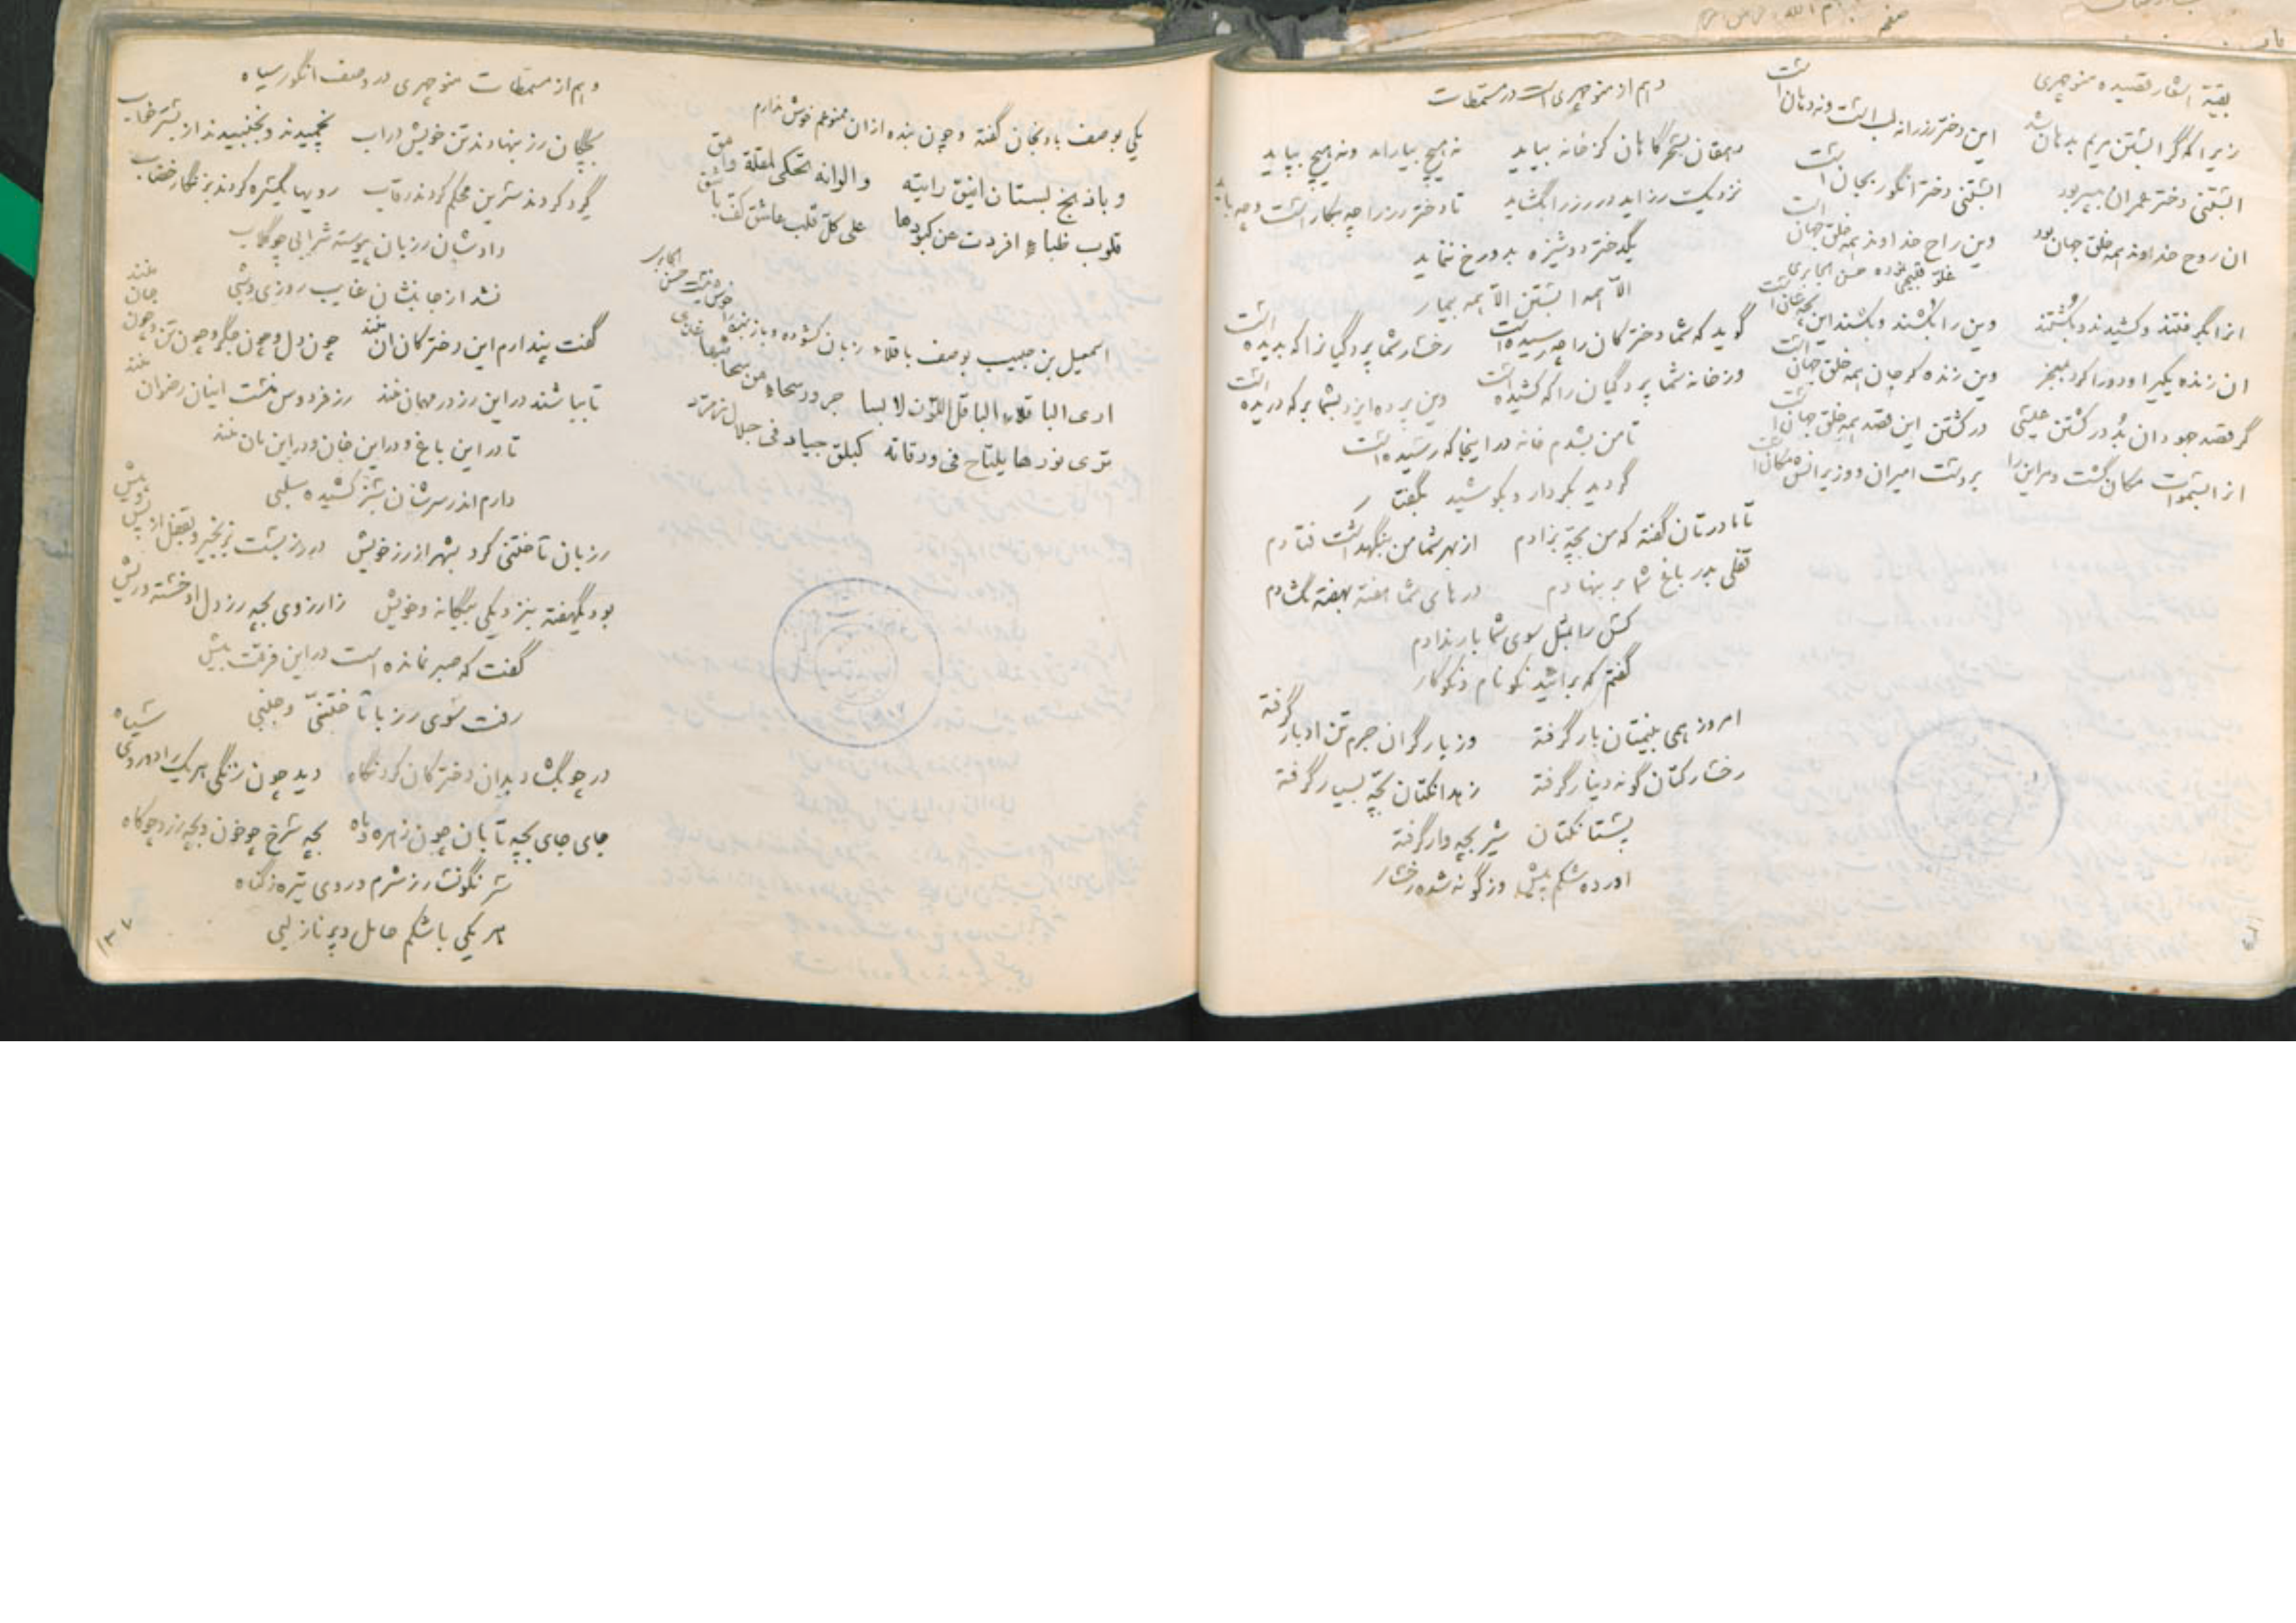 بقیة اشعار قصیده منوچهری
زیرا که گر ابستن مریم بدهان شد این دختر رز را نه لب است و نه دهان است
ابستنی دختر عمران به پسر بود ابستنی دختر انگور بجان است
ان روح خداوند همه خلق جهان بود وین راح خداوند همه خلق جهان است
انرا بگرفتند و کشیدند و بکشتند وین را بکشند و بکشند این بچه سان است
ان زنده یکی را و دو را کرد بمعجز وین زنده گر جان همه خلق جهان است
گر قصد جودان بد در کشتن عیسی در کشتن این قصد همه خلق جهان است
از السموات مکان گشت و مر این را بر دست امیران و وزیرانش مکان است
وهم از منوچهری است در مسمطات
دهقان بسحرگاهان کز خانه بیاید نه هیچ بیاراید و نه هیچ بپاید
نزدیک رز اید در رز را بگشاید تا دختر رز را چه بکار است و چه باید
یکدختر دوشیزه بدو رخ ننماید
الا همه ابستن الا همه بیمار
گوید که شما دخترکان را چه رسیده است رخسار شما پردگیانرا که بدیده است
وز خانه شما پردگیان را که کشیده است وین پرده ایزد بشما بر که دریده است
تا من بشدم خانه در اینجا که رسیده است
گردید بکردار و بکوشید بگفتار
تا مادرتان گفته که من بچه بزادم از بهر شما من بنگهداشت فتادم
قفلی بدر باغ شما بر بنهادم درهای شما هفته بهفته نگشادم
کس را بمثل سوی شما بار ندادم
گفتم که براشید نکونام و نکوکار
امروز همی بینمتان بار گرفته وز بار گران جرم تن ادبار گرفته
رخسارکتان گونه دینار گرفته زهدانکتان بچه بسیار گرفته
پستانکتان شیر بچه وار گرفته
اورده شکم پیش وز گونه شده رخسار
یکی بوصف بادنجان گفته و چون بنده ازان ممنوعم خوش ندارم
و باذنجخ بستان انیق رایته والوانه تحکی لمقلة وامق
قلوب ظباء افردت عن کبودها علی کل قلب عاشق کف باشق
اسمعیل بن حبیب بوصف باقلاء زبان گشوده
اری الباقلاء الباقل اللون لابسا
تری نورها یلتاح فی ورقاته کبلق جیاد فی جلال زمرد
وهم از مسمطات منوچهری در وصف انگور سیاه
بچگان رز بنهادند تن خویش در اب نچمیدند و نجنبیدند از بستر خواب
گرد کردند سرین محکم کردند رقاب رویها یکسره کردند بزنگار خضاب
دادشان رزبان پیوسته شرابی چو گلاب
نشد از جانبشان غایب روزی و شبی
گفت پندارم این دخترکان ان منند چون دل و چون جگر و چون تن و چون جان منند
تا بباشند در این رز در مهمان منند رز فردوس منست اینان رضوان منند
تا در این باغ و در این خان و در این مان منند
دارم اندر سرشان سبز کشیده سلبی
رزبان تاختنی کرد بشهر از رز خویش در رز بست بزنجیر و بقفل از پس و پیش
بود یکهفته بنزدیکی بیگانه و خویش زارزوی بچه رز دل او خسته و ریش
گفت که صبر نمانده است در این فرقت بیش
رفت سوی رز با تاختنی و خببی
در چو بگشاد بدان دخترکان کرد نگاه دید چون زنگی هر یک را دو روی سیاه
جای جای بچه تابان چون زهره و ماه بچه سرخ چو خون و بچه زرد چو کاه
سر نگونسار ز شرم و روی تیره ز گناه
هر یکی با شکم حامل و پر ناز لبی
۱۳۷